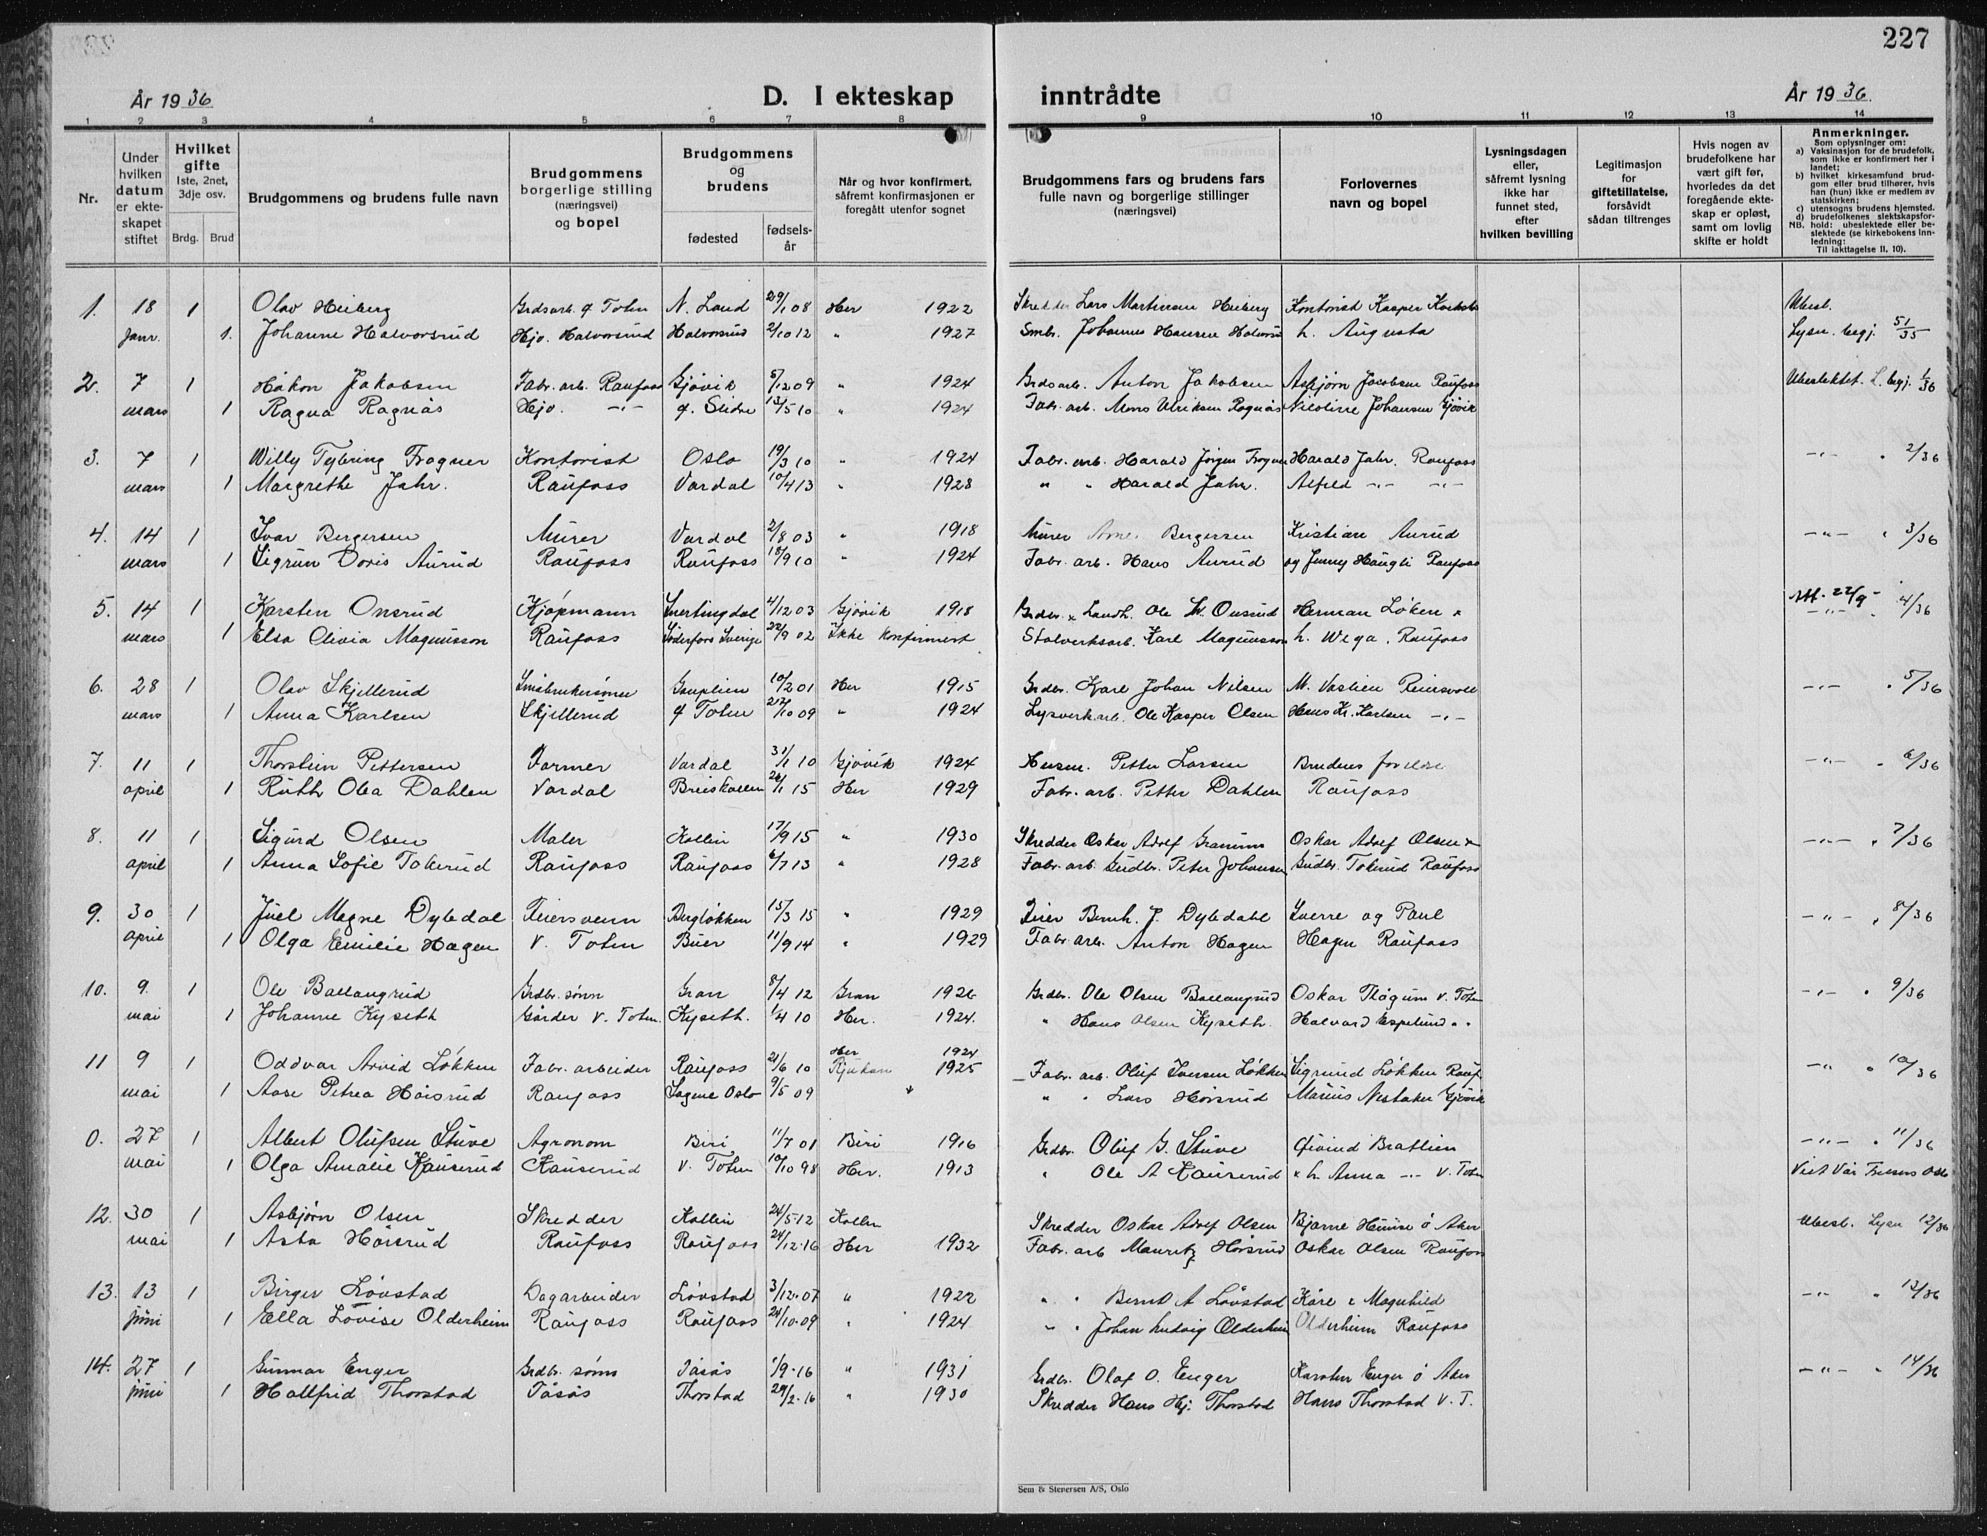 227
År 1936
D. I ekteskap inntrådte
År 1936.
1 2 3 4 5 6 7 8 9 10 11 12 13 14
Nr.
Under hvilken datum er ekteskapet stiftet
Hvilket gifte
1ste, 2net, 3dje osv.
Brdg. Brud
Brudgommens og brudens fulle navn
Brudgommens borgerlige stilling (næringsvei) og bopel
Brudgommens og brudens
fødested
fødselsår
Når og hvor konfirmert, såfremt konfirmasjonen er foregått utenfor sognet
Brudgommens fars og brudens fars fulle navn og borgerlige stillinger (næringsvei)
Forlovernes navn og bopel
Lysningsdagen eller, såfremt lysning ikke har funnet sted, efter hvilken bevilling
Legitimasjon for giftetillatelse, forsåvidt sådan tiltrenges
Hvis nogen av brudefolkene har vært gift før, hvorledes da det foregående ekteskap er opløst, samt om lovlig skifte er holdt
Anmerkninger.
Som oplysninger om:
a) Vaksinasjon for de brudefolk, som ikke er konfirmert her i landet;
b) hvilket kirkesamfund brudgom eller brud tilhører, hvis han (hun) ikke er medlem av statskirken;
c) utensogns brudens hjemsted.
d) brudefolkenes slektskapsforhold: ubeslektede eller beslektede (se kirkebokens innledning:
NB. Til iakttagelse II, 10).
1. 18 1 Olav Heiberg Grdsarb. Ø Toten N. Land 29/1 08 Her 1922 Skredder Lars Martinsen Heiberg Kontorist Kasper Ubesl.
Janr. 1. Johanne Halvorsrud Hjv. Halvorsrud Halvorsrud 2/10 12 " 1927 Smbr. Johannes Hansen Halvorsrud h. Augusta Lysn. begj. 51/35
2. 7 1 Håkon Jakobsen Fabr. arb. Raufoss Gjøvik 5/12 09 " 1924 Grdsarb. Anton Jakobsen Asbjørn Jacobsen Raufoss Ubeslektet. L. begj. 1/36
mars 1 Ragna Ragnås Hjv. -"- Ø. Slidre 13/5 10 " 1924 Fabr. arb. Mons Ulriksen Ragnås Nicoline Johansen Gjøvik
3. 7 1 Willy Tybring Frogner Kontorist Oslo 19/3 10 " 1924 Fabr. arb. Harald Jörgen Frogner Harald Jahr. Raufoss -"- " 2/36
mars 1 Margrethe Jahr. Raufoss Vardal 10/4 13 " 1928 " " Harald Jahr. Alfild -"- -"-
4. 14 1 Ivar Bergersen Murer Vardal 2/8 03 " 1918 Murer Bergersen Kristian Aurud -"- " 3/36
mars 1 Sigrun Doris Aurud Raufoss Raufoss 18/9 10 " 1924 Fabr. arb. Hans Aurud og Jenny Haugli Raufoss
5. 14 1 Karsten Onsrud Kjøpmann Snertingdal 4/12 03 Gjøvik 1918 Grdbr. & Landh. Ole W. Onsrud Herman Løken & Att. 22/9 - -"- " 4/36
mars 1 Elsa Olivia Magnusson Raufoss Söderfors Sverige 22/9 02 Ikke konfirmert Stålverksarb. Karl Magnusson h. Wega, Raufoss
6. 28 1 Olav Skjellerud Småbrukersønn Gauplien 10/2 01 Her 1915 Grdbr. Karl Johan Nilsen M. Vastien Reinsvoll -"- " 5/36
mars 1 Anna Karlsen Skjellerud Ø Toten 27/10 09 " 1924 Lysverkarb. Ole Kasper Olsen Hans Kr. Karlsen -"-
7. 11 1 Thorstein Pettersen Farmer Vardal 31/1 10 Gjøvik 1924 Husm. Petter Larsen Brudens foreldre -"- " 6/36
april 1 Ruth Olea Dahlen Vardal Breiskallen 26/1 15 Her 1929 Fabr. arb. Petter Dahlen Raufoss
8. 11 1 Sigurd Olsen Maler Kolbu 17/9 15 " 1930 Skredder Oskar Adolf Granum Oskar Adolf Olsen & -"- " 7/36
april 1 Anna Sofie Tokerud Raufoss Raufoss 6/7 13 " 1928 Fabr. arb. Gudbr. Peter Johansen Gudbr. Tokerud Raufoss
9. 30 1 Juel Magne Dyledal Feiersvenn Bergløkken 15/3 15 " 1929 Feier Bernh. J. Dyledahl Sverre og Paul -"- " 8/36
april 1 Olga Emilie Hagen V. Toten Buer 11/9 14 " 1929 Fabr. arb. Anton Hagen Hagen Raufoss
10. 9. 1 Ole Ballangrud Grdbr. sønn Gran 8/4 12 Gran 1926 Grdbr. Ole Olsen Ballangrud Oskar V. Toten -"- " 9/36
mai 1 Johanne Kyseth Gårder V. Toten. Kyseth. 1/4 10 Her. 1924. " Hans Olsen Kyseth. Halvard Espelund " "
11 9 1 Oddvar Arvid Løkken Fabr. arbeider Raufoss 21/6 10 Her 1924 Rjukan 1925 Fabr. arb. Oluf Iversen Løkken Sigmund Løkken Rauf. -"- " 10/36
mai 1 Aase Petrea Høisrud Raufoss Sagene Oslo 9/5 09 " " Lars Hörsrud Marius Nestaker Gjøvik
0. 27 1 Albert Olufsen Stuve Agronom Biri 11/7 01 Biri 1916 Grdbr. Oluf G. Stuve Øivind Bratlien -"- " 11/36
mai 1 Olga Amalie Kauserud Kauserud V. Toten 10/10 98 Her. 1913 " Ole A Kauserud & h Anna -"- V. Totn Viet Vår Frelsers Oslo
12. 30 1 Asbjørn Olsen Skredder Kolbu 24/5-12 Kolbu Skredder Oskar Adolf Olsen Bjarne ö Aker Ubesl. Lysn 12/36
mai 1 Asta Høisrud Raufoss Raufoss 24/12-16 Her 1932 Fabr. arb Mauritz Hörsrud Oskar Olsen Raufoss
13. 13 1 Birger Løvstad Dagarbeider Løvstad 3/12-07 " 1922 " " Bernt A Lövstad Kåre & Magnhild -"- " 13/36
juni 1 Ella Lovise Olderheim Raufoss Raufoss 24/10-09 " 1924 " " Johan Ludvig Olderheim Olderheim Raufoss
14. 27 1 Gunnar Enger Grdbr. sønn Tåsås 1/9-16 " 1931 Grdbr. Olaf O. Enger Karsten Enger ö Aker -"- " 14/36
juni 1 Hallfrid Thorstad Tåsås Thorstad 29/2-16 " 1930 Skredder Hans Hj. Thorstad Hans Thorstad V. T.
Sem & Stenersen A/S, Oslo